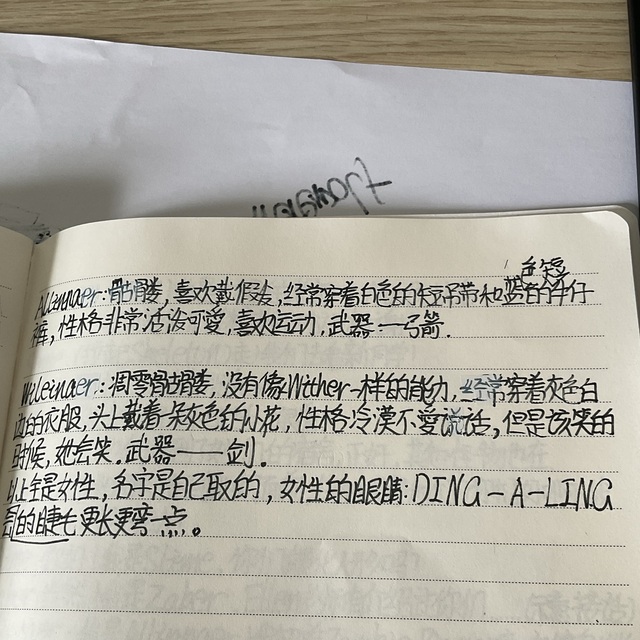 色短
Allennaer:骷髅,喜欢戴假发,经常穿着白色的短吊带和蓝色的牛仔
裤,性格非常活泼可爱,喜欢运动,武器—弓箭.
Wileinaer:凋零骷髅,没有像Wither一样的能力,经常穿着灰色白
边的衣服,头上戴着灰色的小花,性格冷漠不爱说话,但是该笑的
时候,她会笑.武器——剑.
以上全是女性,名字是自己取的,女性的眼睛:DING-A-LING
的睫毛更长更弯一点。